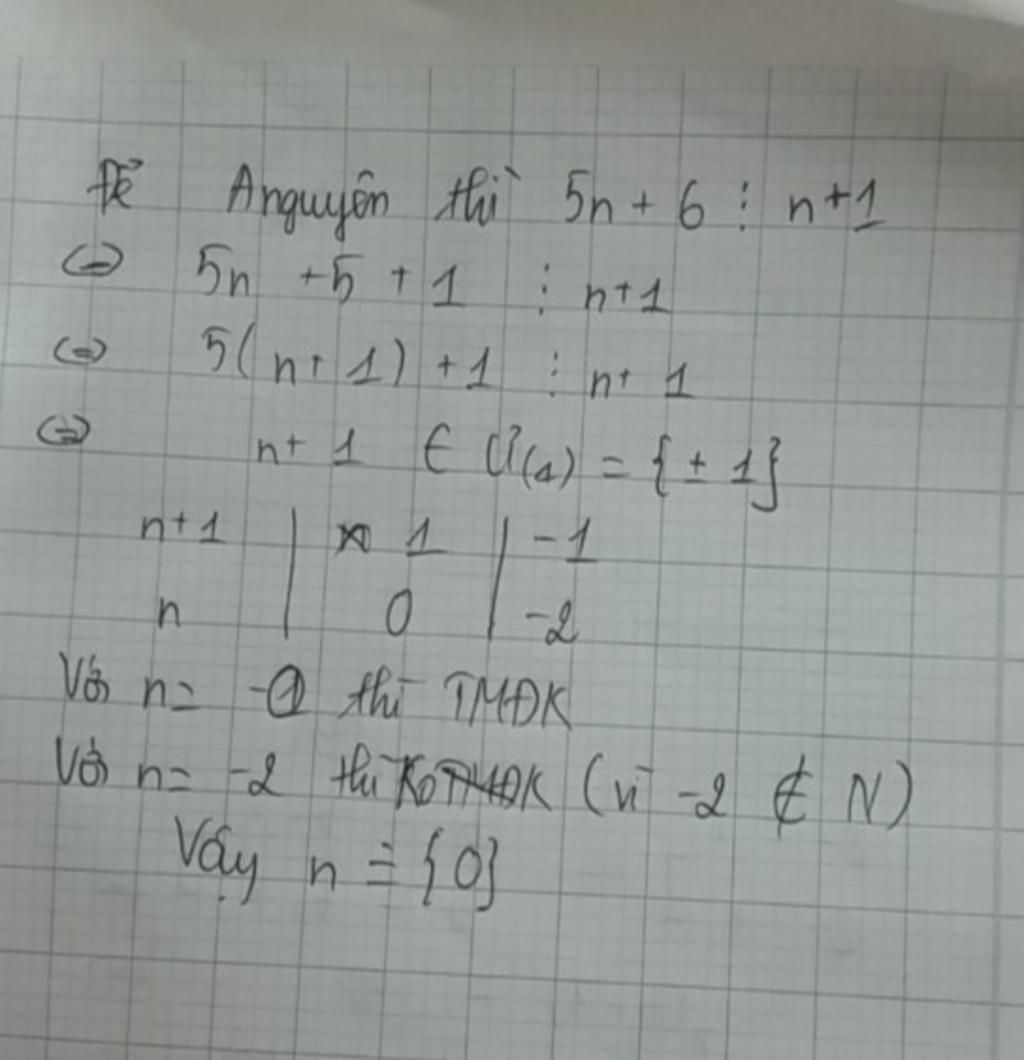 Để A nguyên thì 5n + 6 ⋮ n+1
(=) 5n +5 + 1 ⋮ n+1
(=) 5(n+ 1) +1 ⋮ n+ 1
(=) n+ 1 ∈ Ư(1) = {± 1}
n+1 | 1 | -1
n | 0 | -2
Với n= 0 thì TMĐK
Với n= -2 thì Ko TMĐK (vì -2 ∉ N)
Vậy n = {0}